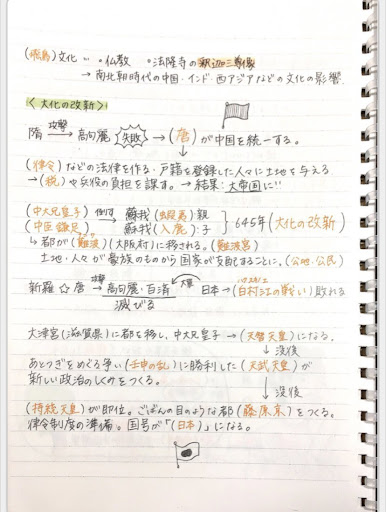 (飛鳥)文化 … ・仏教 ・法隆寺の釈迦三尊像
→ 南北朝時代の中国・インド・西アジアなどの文化の影響.
〈大化の改新〉
隋 攻撃→ 高句麗 失敗 →(唐)が中国を統一する。
(律令)などの法律を作る・戸籍を登録した人々に土地を与える
→(税)や兵役の負担を課す。→ 結果:大帝国に!!
(中大兄皇子) 倒す→ 蘇我(蝦夷):親
(中臣鎌足) 蘇我(入鹿):子 } 645年(大化の改新)
↳ 都が(難波)(大阪村)に移される。(難波宮)
土地・人々が豪族のものから国家が支配することに。(公地・公民)
新羅☆唐 攻撃→ 高句麗・百済 大軍 日本→(白村江の戦い)敗れる
滅びる
大津宮(滋賀県)に都を移し、中大兄皇子 →(天智天皇)になる.
↓没後
あとつぎをめぐる争い(壬申の乱)に勝利した(天武天皇)が
新しい政治のしくみをつくる。
↓没後
(持統天皇)が即位。ごばんの目のような都(藤原京)をつくる。
律令制度の準備。国号が「(日本)」になる。